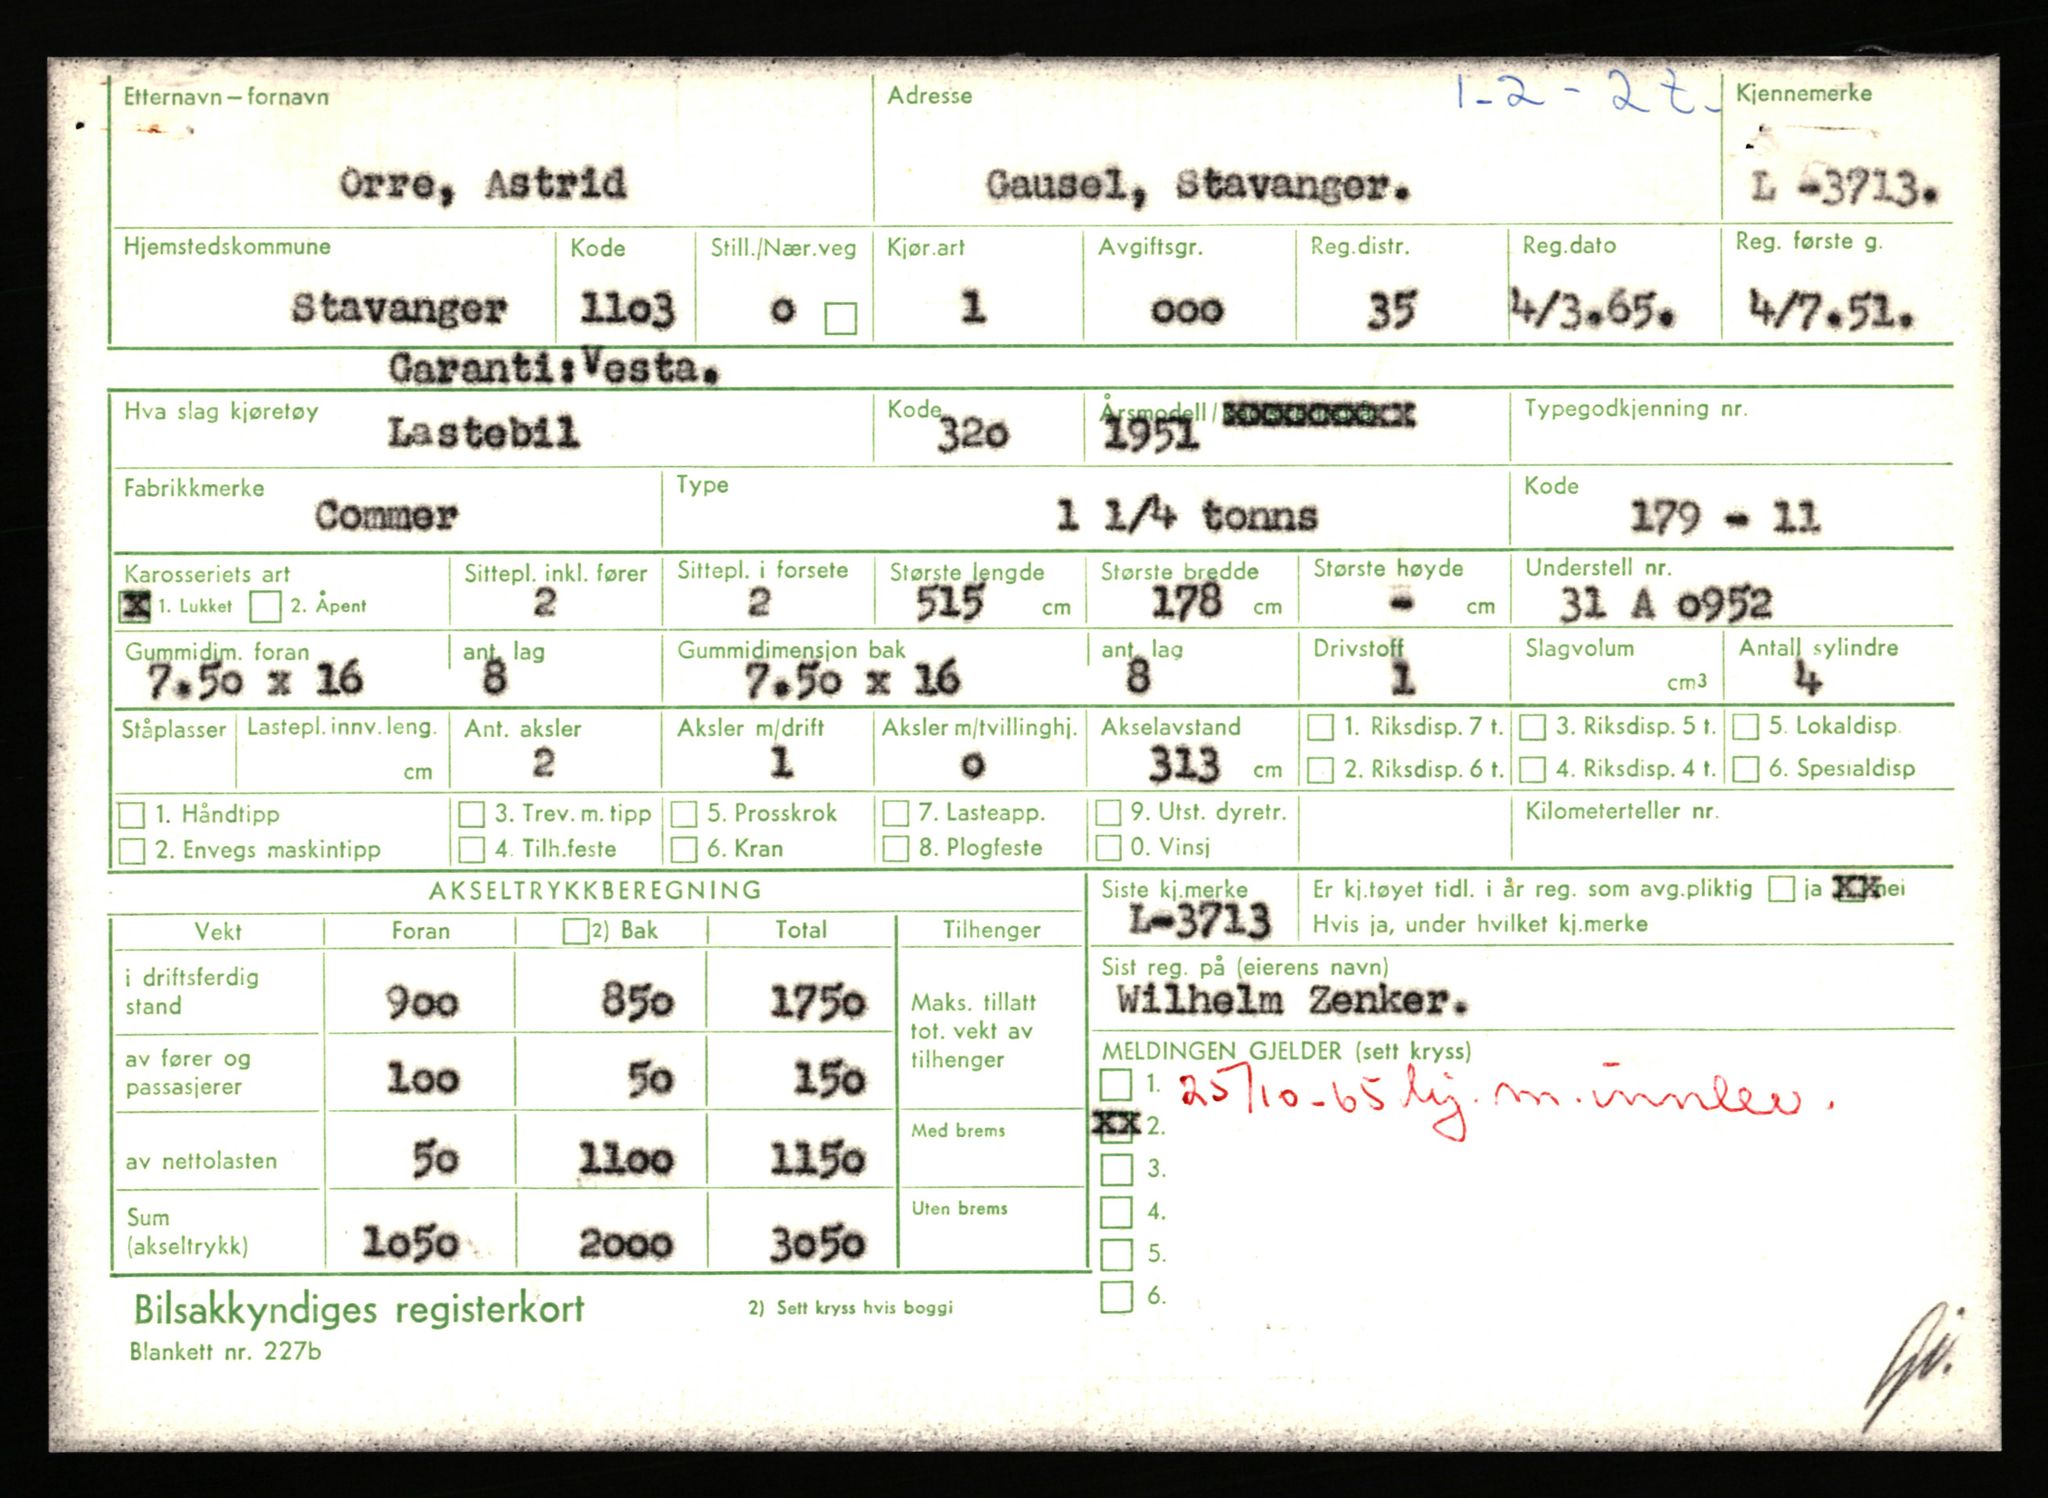 Etternavn – fornavn Adresse 1-2-2 Kjennemerke
Orre, Astrid Gausel, Stavanger. L -3713.
Hjemstedskommune Kode Still./Nær.veg Kjør.art Avgiftsgr. Reg.distr. Reg.dato Reg. første g.
Stavanger 1103 0 1 000 35 4/3.65. 4/7.51.
Garanti: Vesta.
Hva slag kjøretøy Kode Årsmodell/ Typegodkjenning nr.
Lastebil 320 1951
Fabrikkmerke Type Kode
Commer 1 1/4 tonns 179 - 11
Karosseriets art Sittepl. inkl. fører Sittepl. i forsete Største lengde Største bredde Største høyde Understell nr.
X 1. Lukket 2. Åpent 2 2 515 cm 178 cm - cm 31 A 0952
Gummidim. foran ant. lag Gummidimensjon bak ant. lag Drivstoff Slagvolum Antall sylindre
7.50 x 16 8 7.50 x 16 8 1 cm3 4
Ståplasser Lastepl. innv. leng. Ant. aksler Aksler m/drift Aksler m/tvillinghj. Akselavstand 1. Riksdisp. 7 t. 3. Riksdisp. 5 t. 5. Lokaldisp.
cm 2 1 0 313 cm 2. Riksdisp. 6 t. 4. Riksdisp. 4 t. 6. Spesialdisp
1. Håndtipp 3. Trev. m. tipp 5. Prosskrok 7. Lasteapp. 9. Utst. dyretr. Kilometerteller nr.
2. Envegs maskintipp 4. Tilh.feste 6. Kran 8. Plogfeste 0. Vinsj
AKSELTRYKKBEREGNING Siste kj.merke Er kj.tøyet tidl. i år reg. som avg.pliktig ja XX nei
L-3713 Hvis ja, under hvilket kj.merke
Vekt Foran 2) Bak Total Tilhenger
Sist reg. på (eierens navn)
Wilhelm Zenker.
i driftsferdig stand 900 850 1750 Maks. tillatt tot. vekt av tilhenger
MELDINGEN GJELDER (sett kryss)
av fører og passasjerer 100 50 150
1. 25/10-65 kj. m. innlev.
XX 2.
Med brems
av nettolasten 50 1100 1150
3.
4.
Uten brems
Sum (akseltrykk) 1050 2000 3050
5.
6.
Bilsakkyndiges registerkort 2) Sett kryss hvis boggi
Blankett nr. 227b